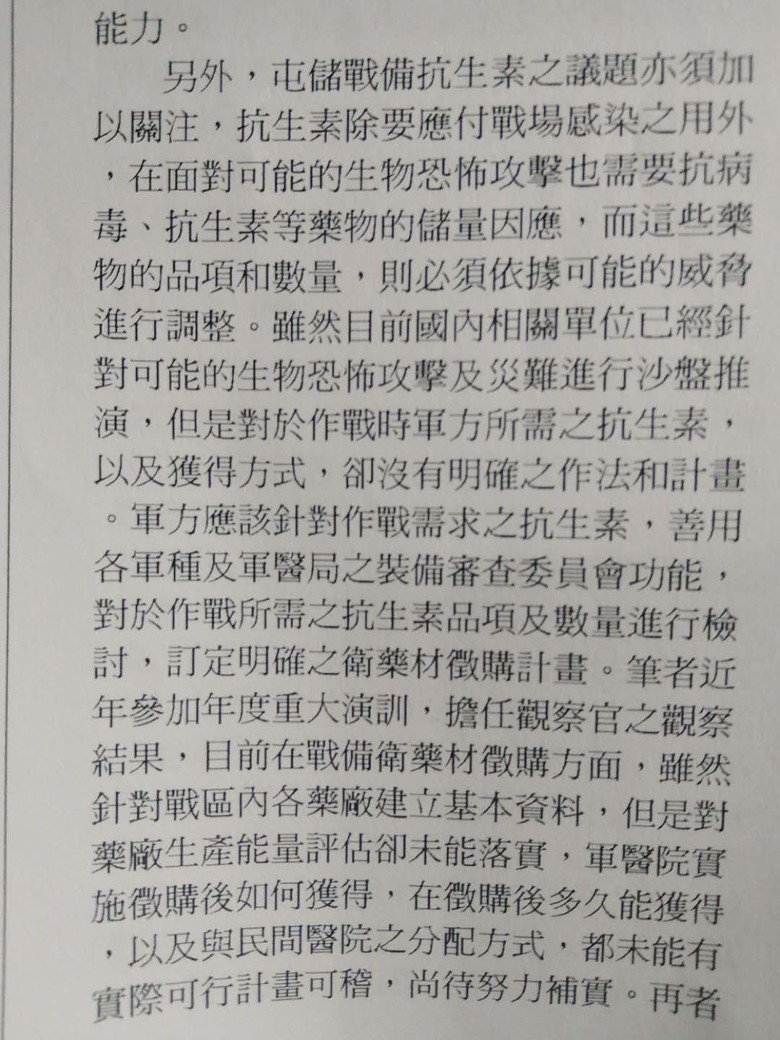 能力。
另外，屯儲戰備抗生素之議題亦須加
以關注，抗生素除要應付戰場感染之用外
，在面對可能的生物恐怖攻擊也需要抗病
毒、抗生素等藥物的儲量因應，而這些藥
物的品項和數量，則必須依據可能的威脅
進行調整。雖然目前國內相關單位已經針
對可能的生物恐怖攻擊及災難進行沙盤推
演，但是對於作戰時軍方所需之抗生素，
以及獲得方式，卻沒有明確之作法和計畫
。軍方應該針對作戰需求之抗生素，善用
各軍種及軍醫局之裝備審查委員會功能，
對於作戰所需之抗生素品項及數量進行檢
討，訂定明確之衛藥材徵購計畫。筆者近
年參加年度重大演訓，擔任觀察官之觀察
結果，目前在戰備衛藥材徵購方面，雖然
針對戰區內各藥廠建立基本資料，但是對
藥廠生產能量評估卻未能落實，軍醫院實
施徵購後如何獲得，在徵購後多久能獲得
，以及與民間醫院之分配方式，都未能有
實際可行計畫可稽，尚待努力補實。再者